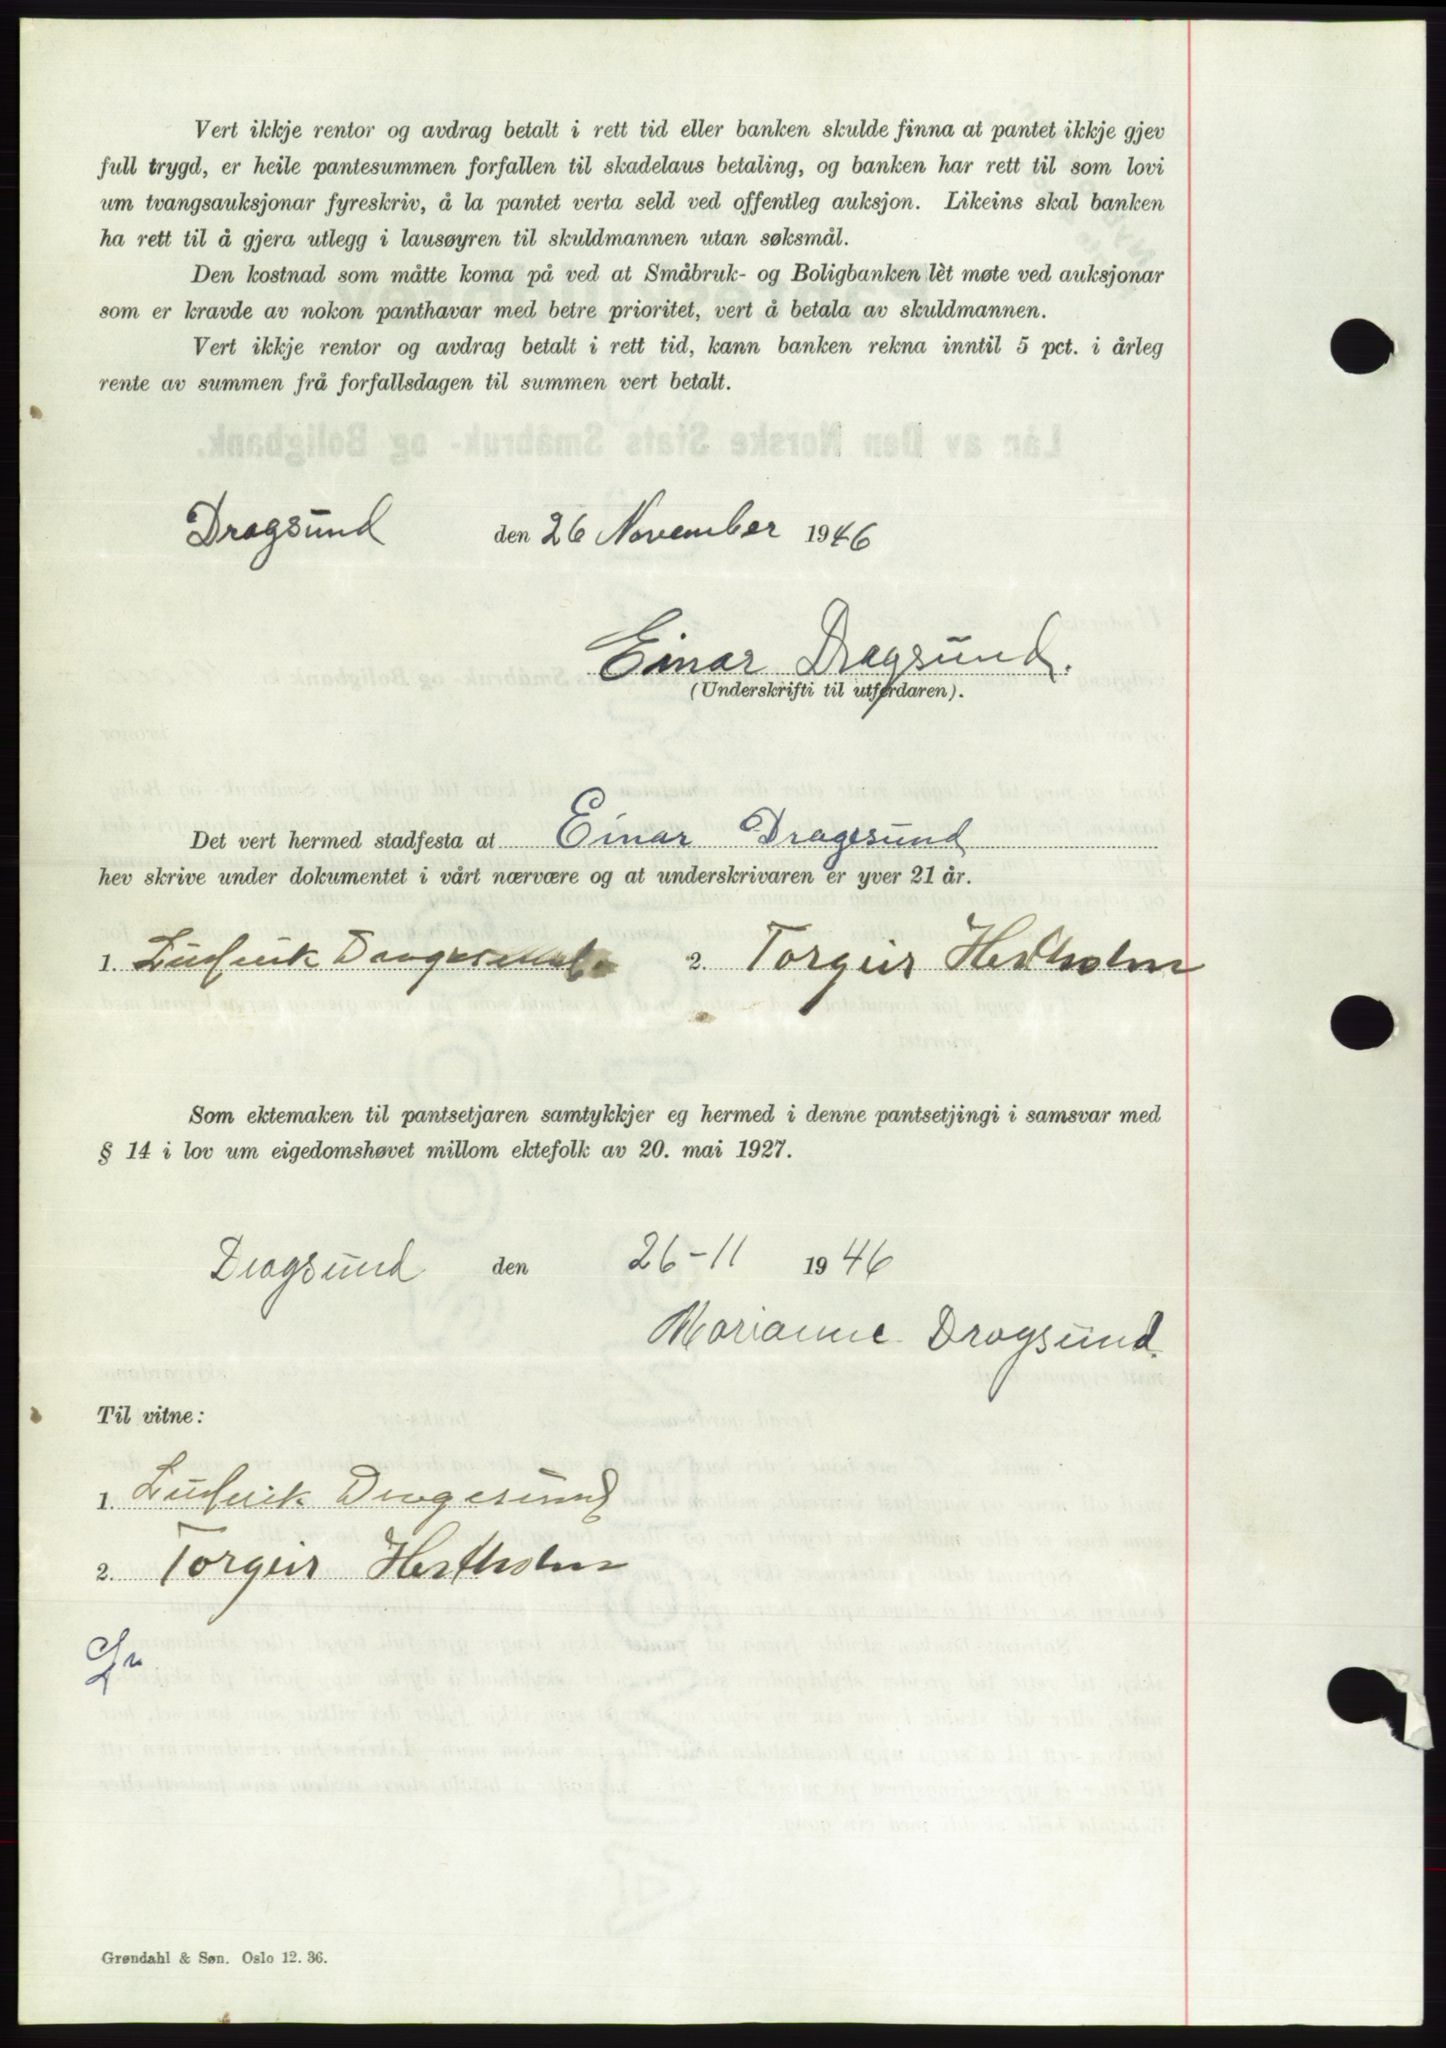 Vert ikkje rentor og avdrag betalt i rett tid eller banken skulde finna at pantet ikkje gjev
full trygd, er heile pantesummen forfallen til skadelaus betaling, og banken har rett til som lovi
um tvangsauksjonar fyreskriv, å la pantet verta seld ved offentleg auksjon. Likeins skal banken
ha rett til å gjera utlegg i lausøyren til skuldmannen utan søksmål.
Den kostnad som måtte koma på ved at Småbruk- og Boligbanken lèt møte ved auksjonar
som er kravde av nokon panthavar med betre prioritet, vert å betala av skuldmannen.
Vert ikkje rentor og avdrag betalt i rett tid, kann banken rekna inntil 5 pct. i årleg
rente av summen frå forfallsdagen til summen vert betalt.
Lån av Den Norske Stats Småbruk- og Boligbank.
Dragsund den 26 November 1946
Einar Dragsund.
(Underskrifti til utferdaren).
Det vert hermed stadfesta at Einar Dragesund
hev skrive under dokumentet i vårt nærvære og at underskrivaren er yver 21 år.
1. Ludvik Dragesund 2. Torgeir Hestholm
Som ektemaken til pantsetjaren samtykkjer eg hermed i denne pantsetjingi i samsvar med
§ 14 i lov um eigedomshøvet millom ektefolk av 20. mai 1927.
Dragsund den 26-11 1946
Marianne Dragsund.
Til vitne:
1. Ludvik Dragesund
2. Torgeir Hestholm
Grøndahl & Søn. Oslo 12. 36.